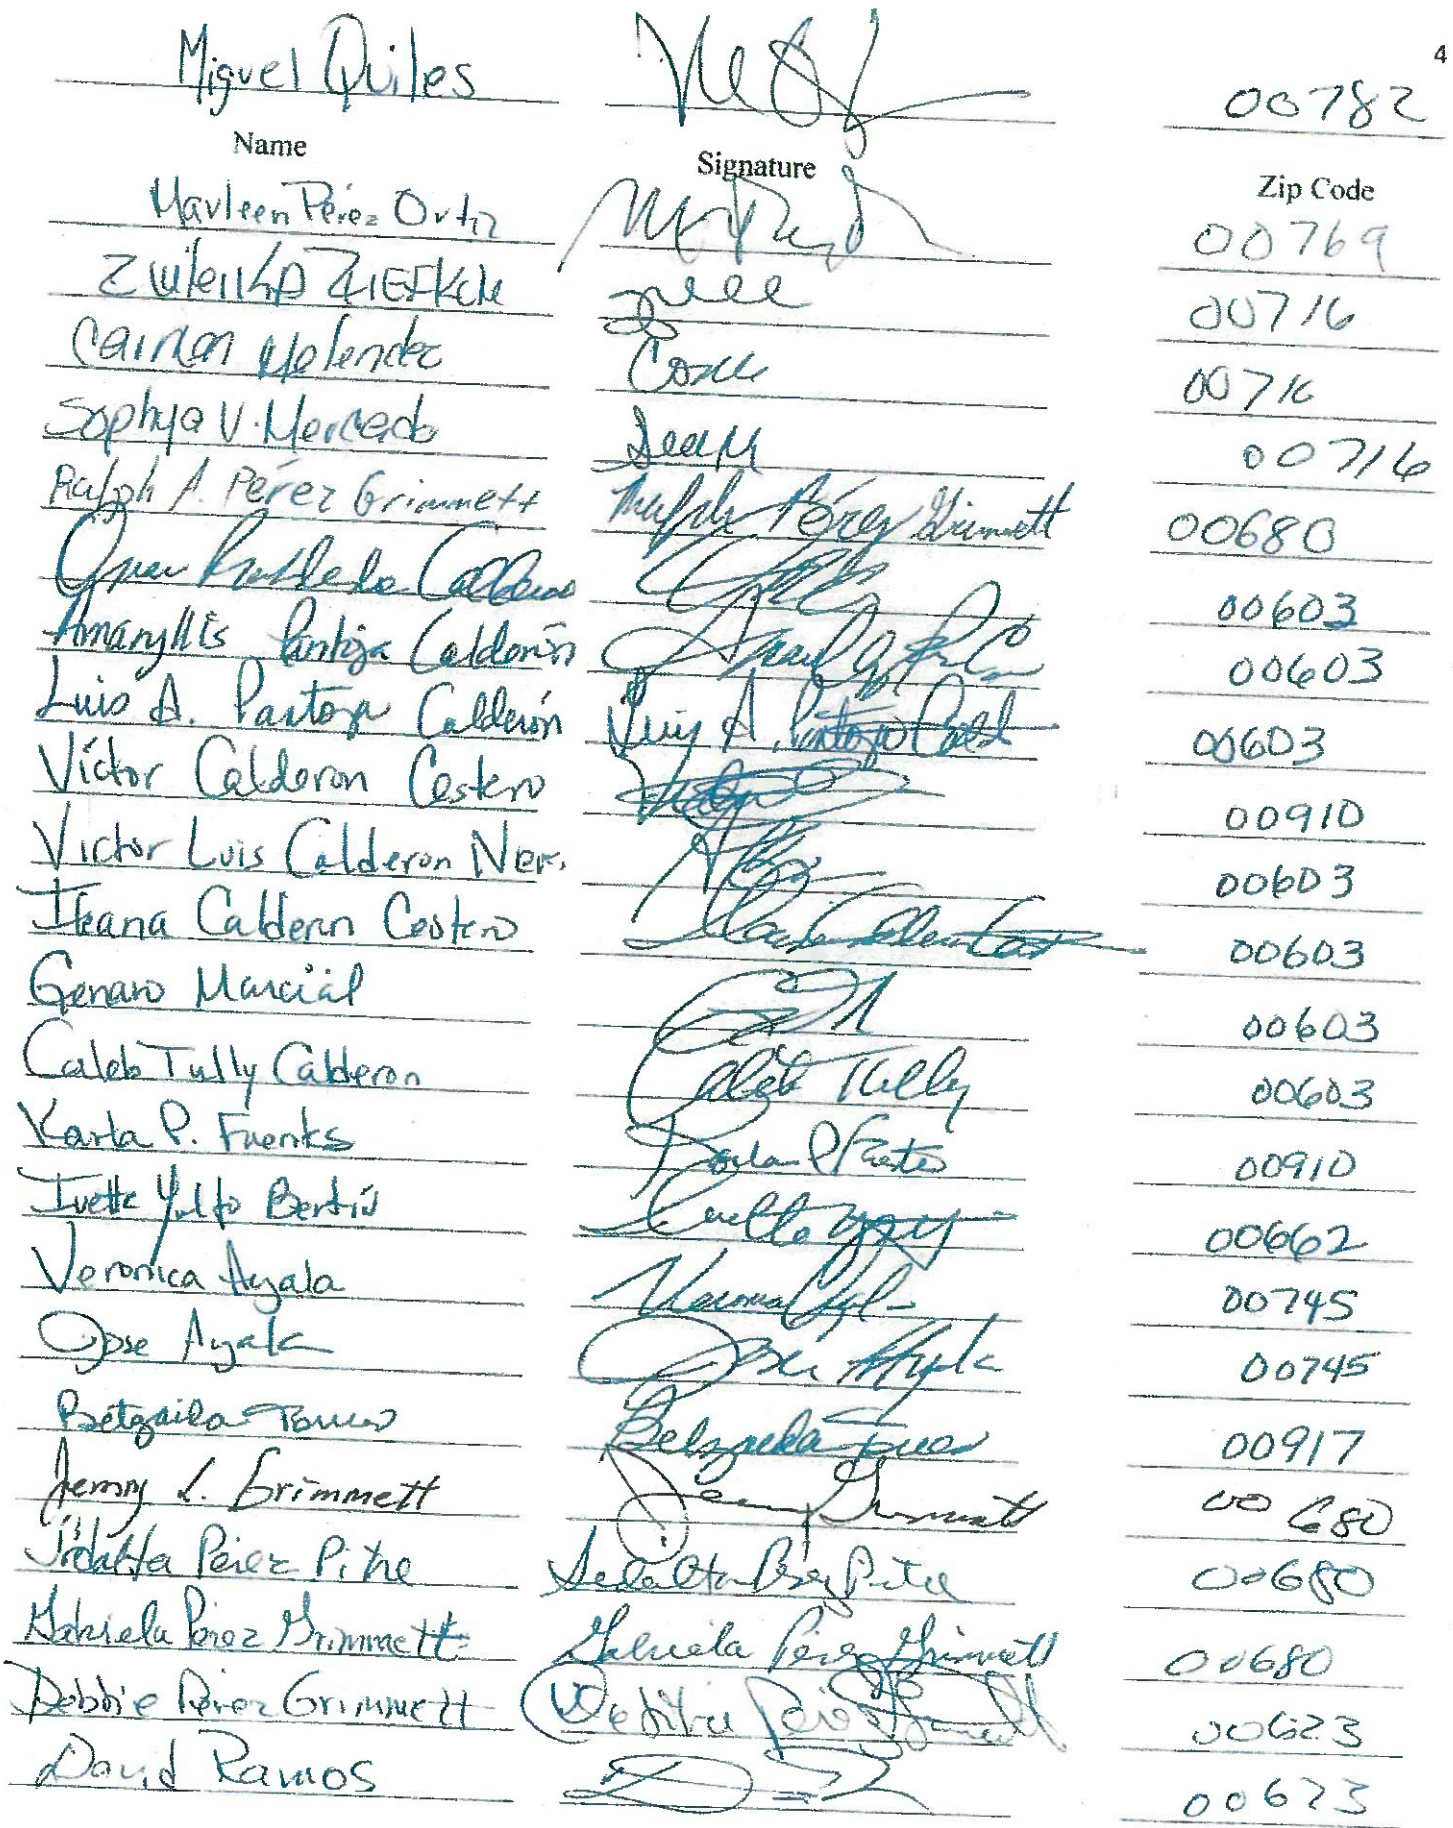 4
Miguel Quiles 00782
Name Signature Zip Code
Marleen Pérez Ortiz 00769
00716
Carmen Melendez 00716
Sophya V. Mercado 00716
Ralph A. Pérez Grimmett Ralph Pérez Grimmett 00680
00603
Amaryllis Pantoja Calderón 00603
Luis A. Pantoja Calderón Luis A. Pantoja Cald 00603
Víctor Calderon Cestero 00910
Victor Luis Calderon Ner. 00603
Ileana Calderon Cestero 00603
Genaro Marcial 00603
Caleb Tully Calderon Caleb Tully 00603
Karla P. Fuentes Karla P Fuentes 00910
Ivette 00662
Veronica Ayala 00745
Jose Ayala Jose Ayala 00745
Betzaida Torres Betzaida Torres 00917
Jenny L. Grimmett Jenny Grimmett 00680
Idalita Pérez Pitre Idalita Pérez Pitre 00680
Gabriela Pérez Grimmett Gabriela Pérez Grimmett 00680
Debbie Pérez Grimmett Debbie Pérez Grimmett 00623
David Ramos 00623